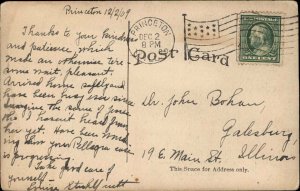 Princeton 12/2/09
Thanks to your kindness
and patience, which
made an otherwise tire-
some wait, pleasant.
Arrived home safely and
have been busy ever since
the same if you
I haven't heard from
her yet. Have been
how your Pellagra case
is progressing.
Take good care of
yourself.
PRINCETON
DEC 2
8 PM
Post Card
ONE CENT
Dr. John Bohan,
Galesburg,
19 E. Main St. Illinois.
This Space for Address only.